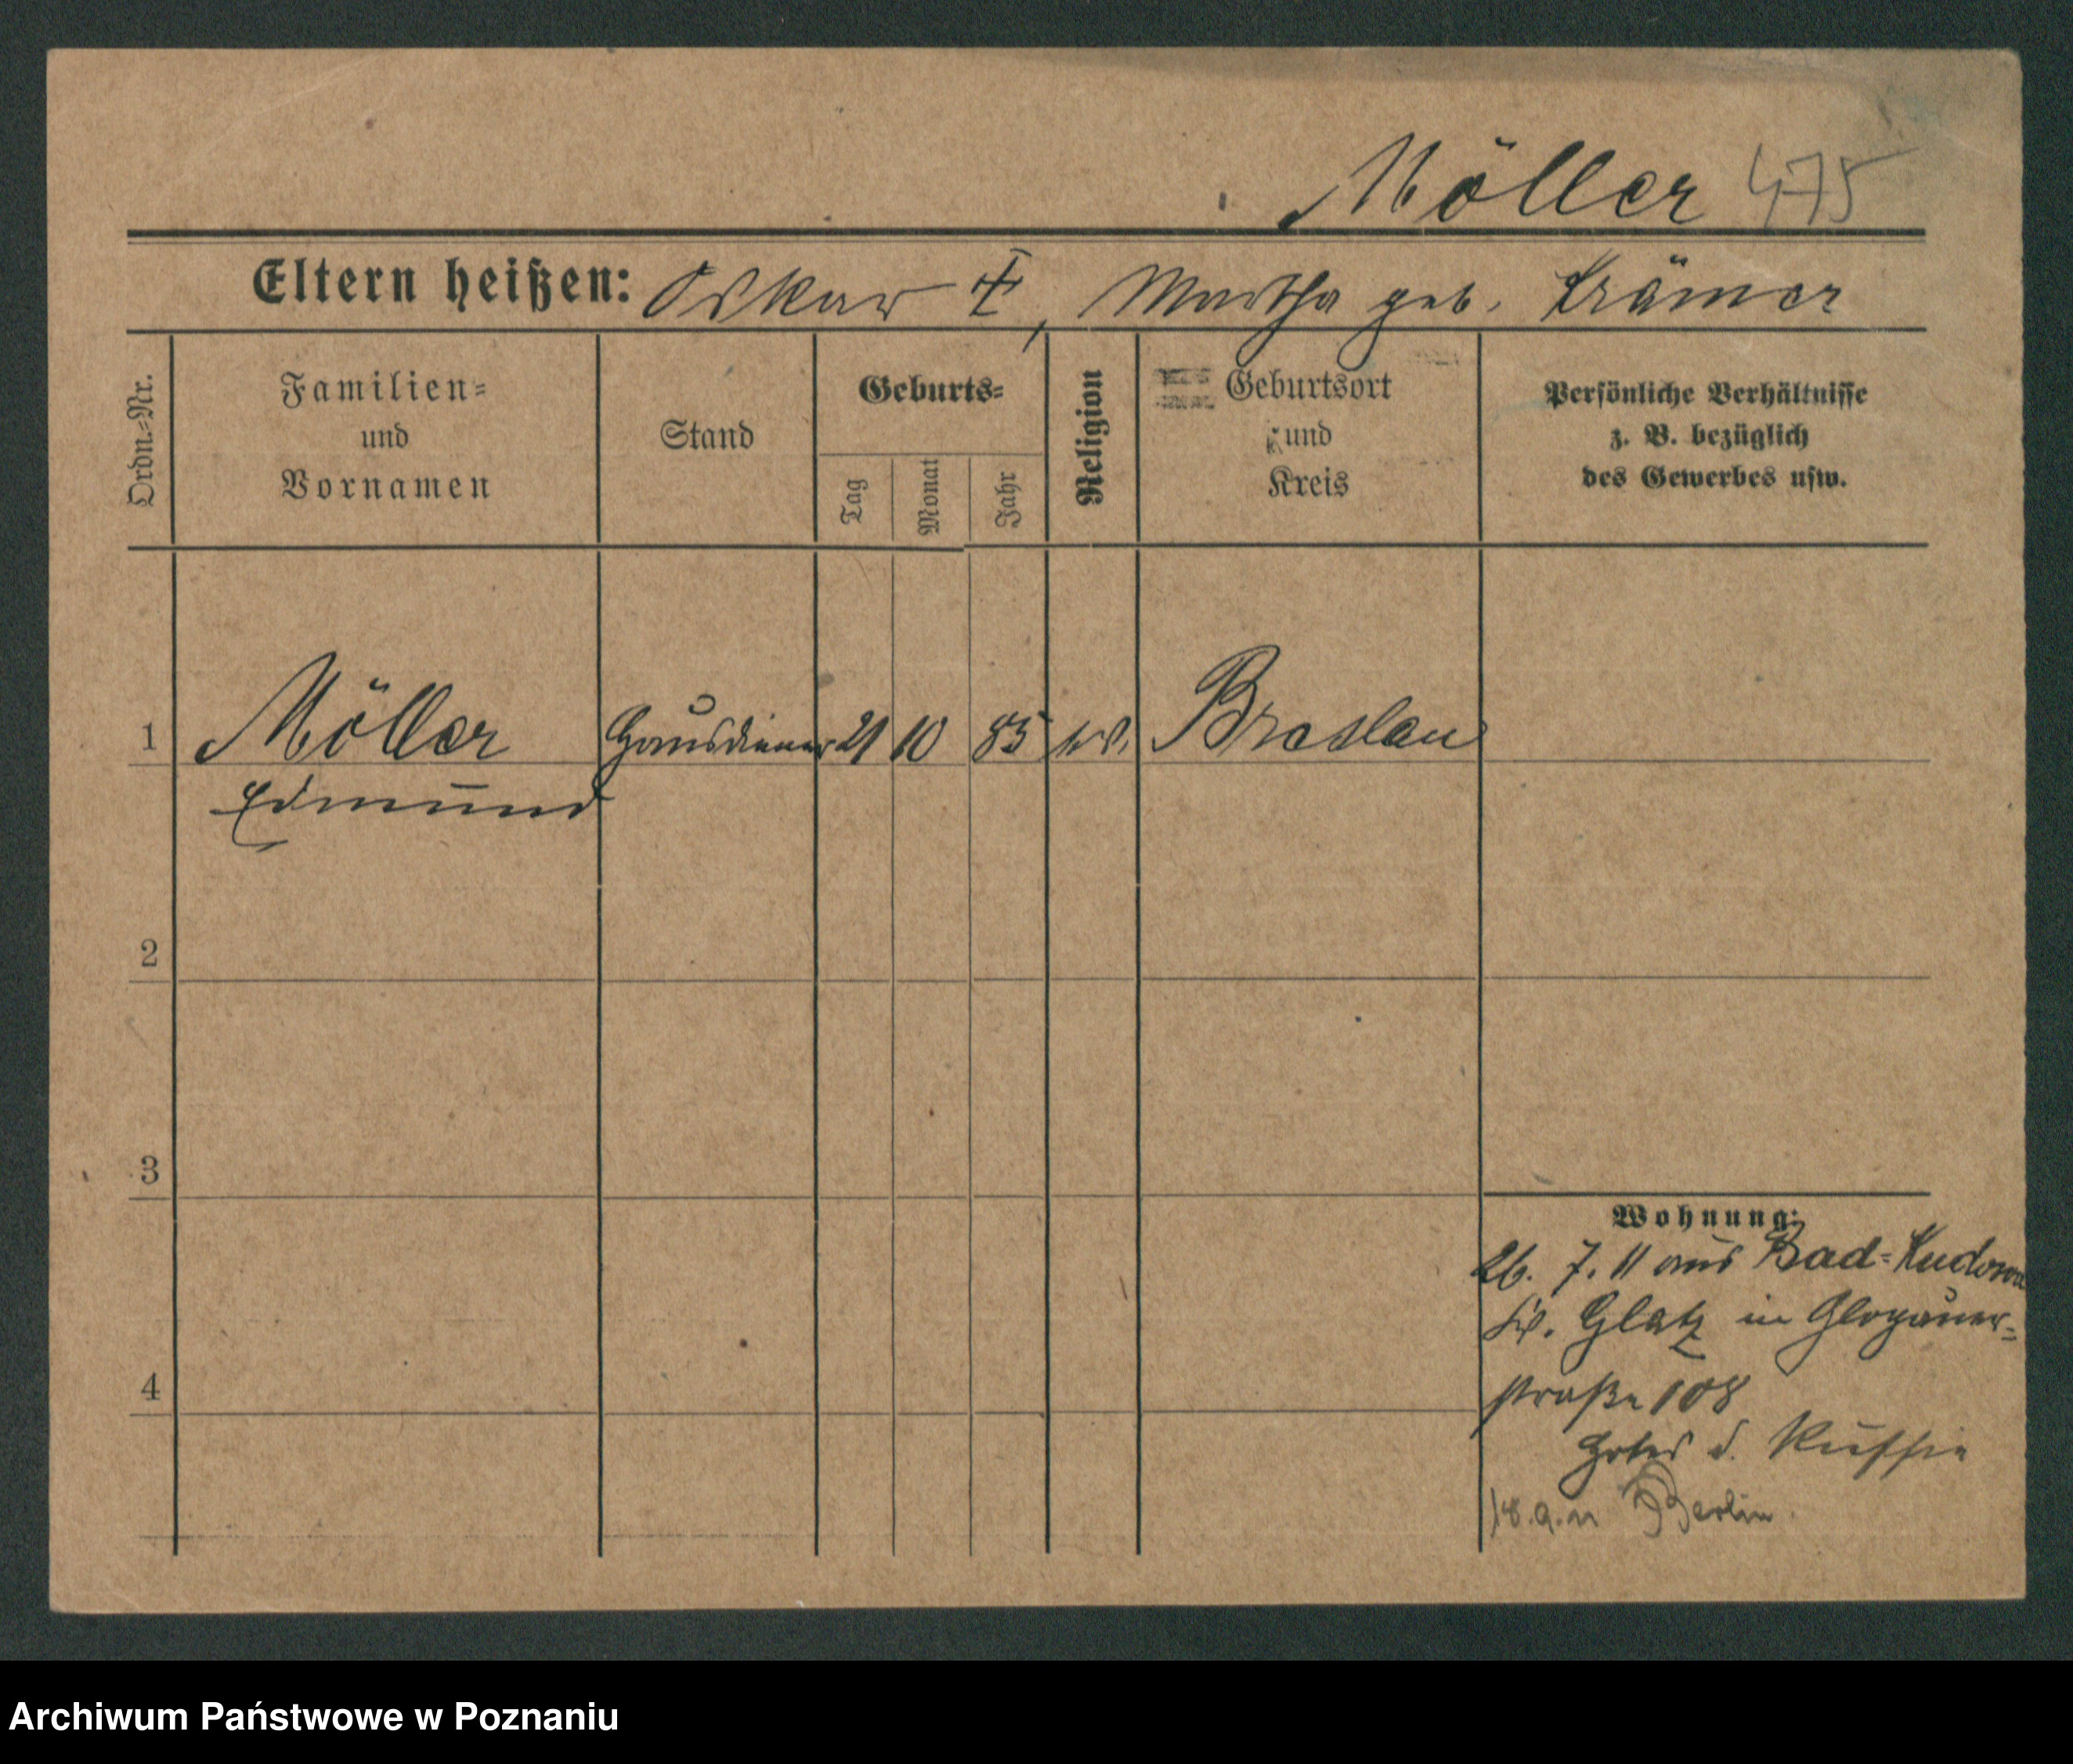 Möller 475
Eltern heißen: Oskar ‡, Martha geb. Krämer
Ordn.-Nr.
Familien-
und
Vornamen
Stand
Geburts-
Tag
Monat
Jahr
Religion
Geburtsort
und
Kreis
Persönliche Verhältnisse
z. B. bezüglich
des Gewerbes usw.
1 Möller Hausdiener 21 10 85 Breslau
Edmund
2
3
4
Wohnung:
26. 7. 11 aus Bad-Kudowa
Kr. Glatz in Glogauer-
straße 108
Hotel d. Russie
18.9.11 Berlin.
Archiwum Państwowe w Poznaniu